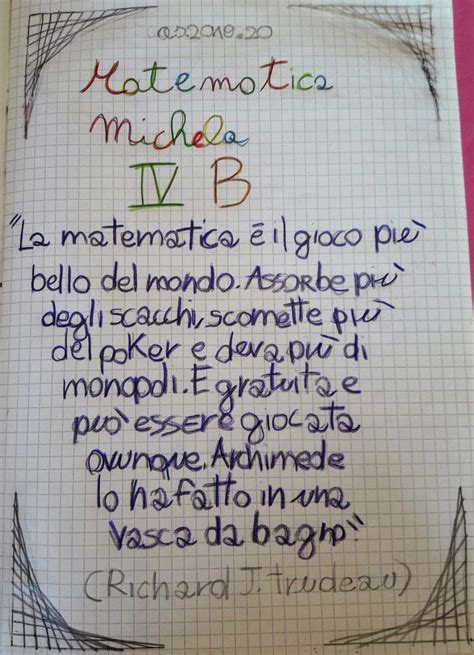 a.s.2019.20
Matematica
Michela
IV B
"La matematica è il gioco più
bello del mondo. Assorbe più
degli scacchi, scomette più
del poker e dera più di
monopoli. È gratuita e
può essere giocata
ovunque. Archimede
lo ha fatto in una
vasca da bagno."
(Richard J. trudeau)